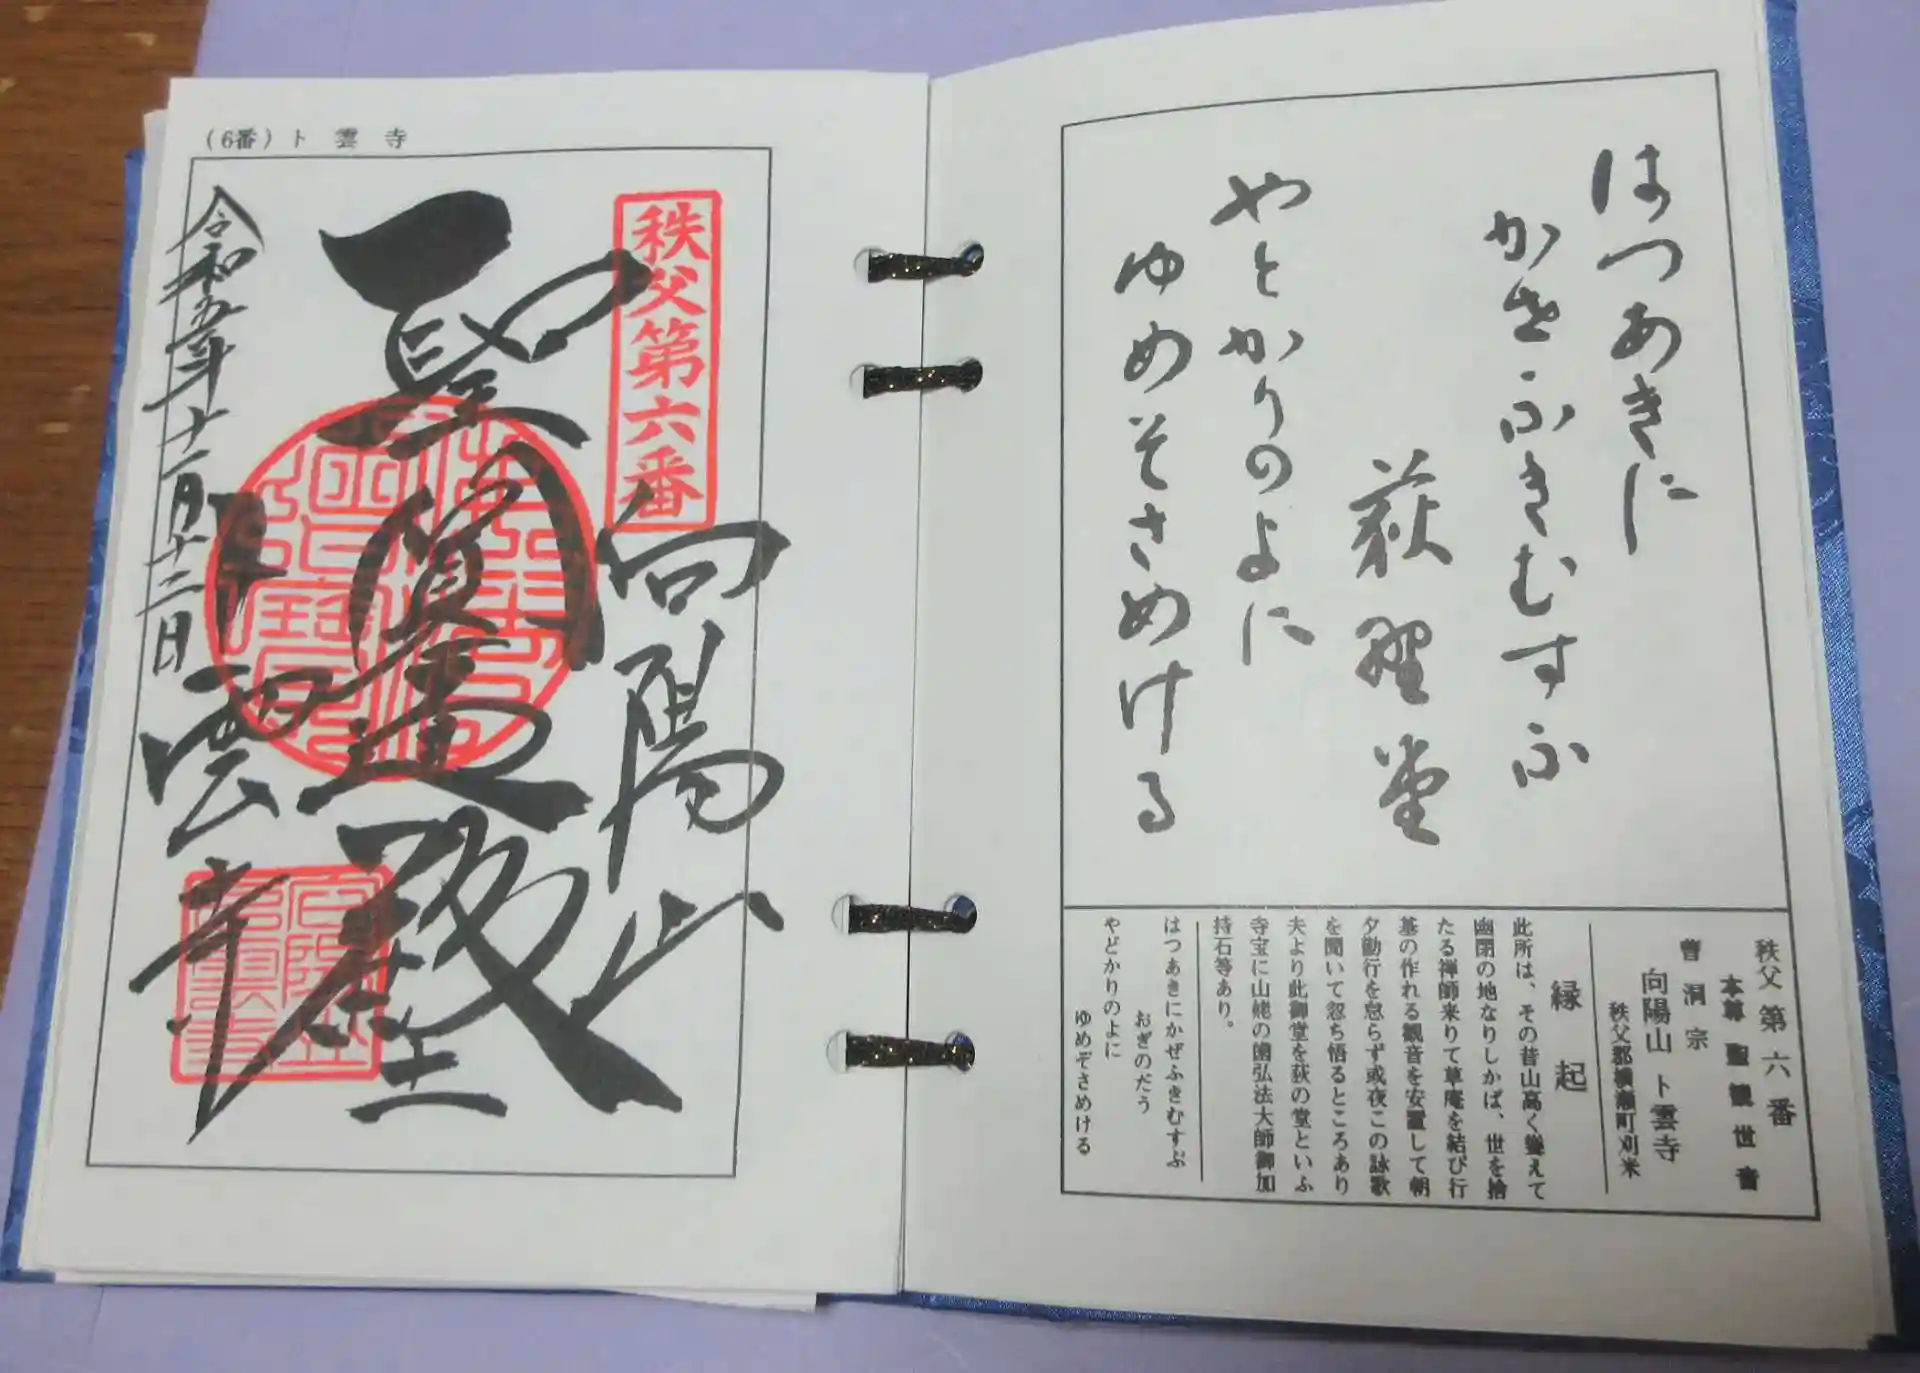 はつあきに
かせふきむすふ
荻野堂
やとかりのよに
ゆめそさめける
秩父第六番
本尊 聖観世音
曹洞宗
向陽山 卜雲寺
秩父郡横瀬町刈米
縁起
此所は、その昔山高く聳えて
幽閉の地なりしかば、世を捨
たる禅師来りて草庵を結び行
基の作れる観音を安置して朝
夕勤行を怠らず或夜この詠歌
を聞いて忽ち悟るところあり
夫より此御堂を荻の堂といふ
寺宝に山姥の歯弘法大師御加
持石等あり。
はつあきにかぜふきむすぶ
おぎのだう
やどかりのよに
ゆめぞさめける
(6番) 卜雲寺
秩父第六番
向陽山
聖大悲殿
卜雲寺
令和五年十一月十二日